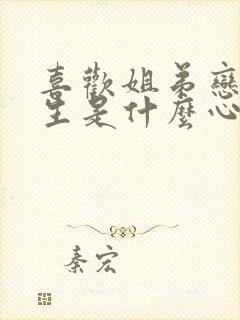 喜歡姐弟戀
生是什麼心
秦宏